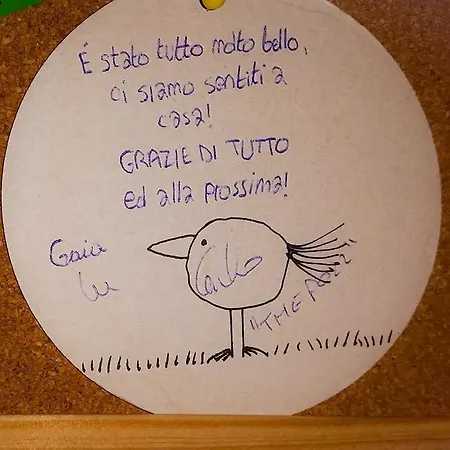 É stato tutto molto bello,
ci siamo sentiti a
casa!
GRAZIE DI TUTTO
ed alla prossima!
Gaia
"THE